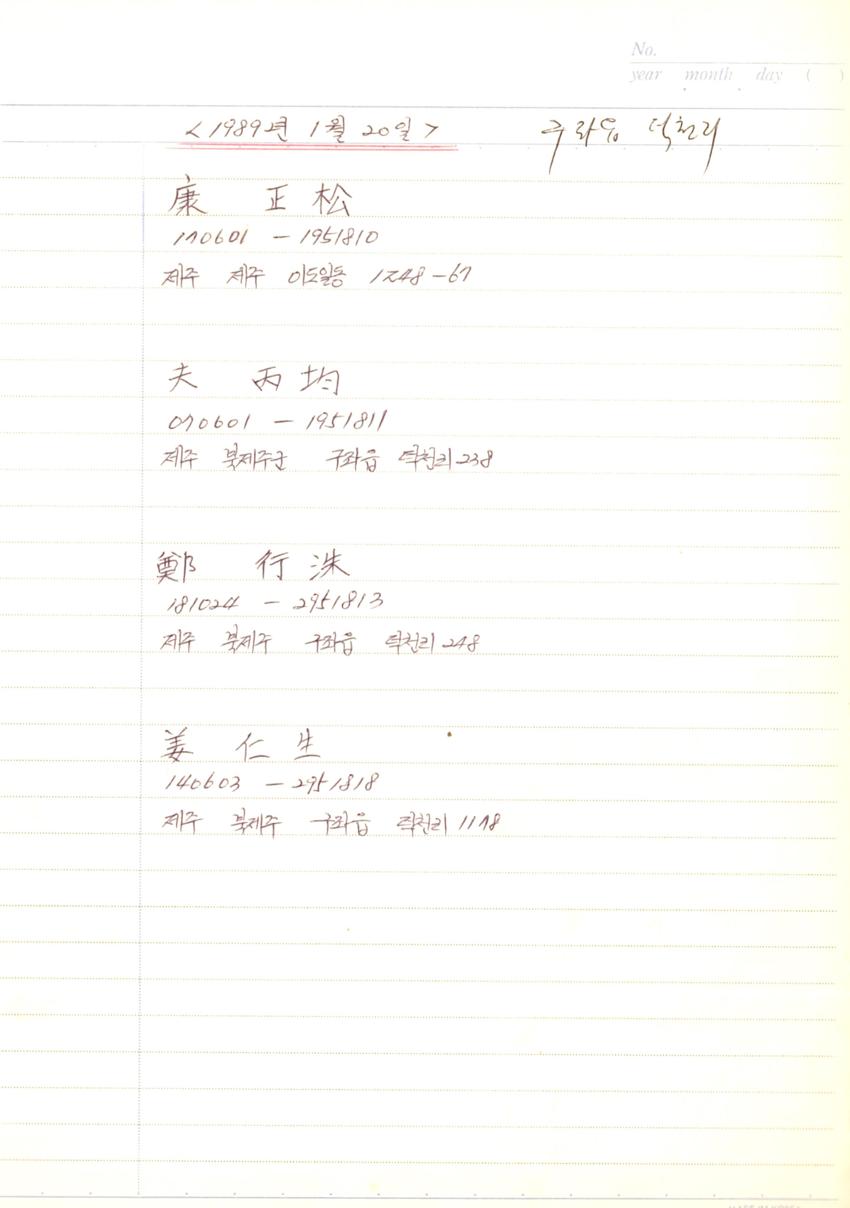 No.
year month day ( )
<1989년 1월 20일> 구좌읍 덕천리
康 正 松
170601 - 1951810
제주 제주 이도일동 1248-67
夫 丙 均
070601 - 1951811
제주 북제주군 구좌읍 덕천리 238
鄭 行 洙
181024 - 2951813
제주 북제주 구좌읍 덕천리 248
姜 仁 生
140603 - 2951818
제주 북제주 구좌읍 덕천리 1178